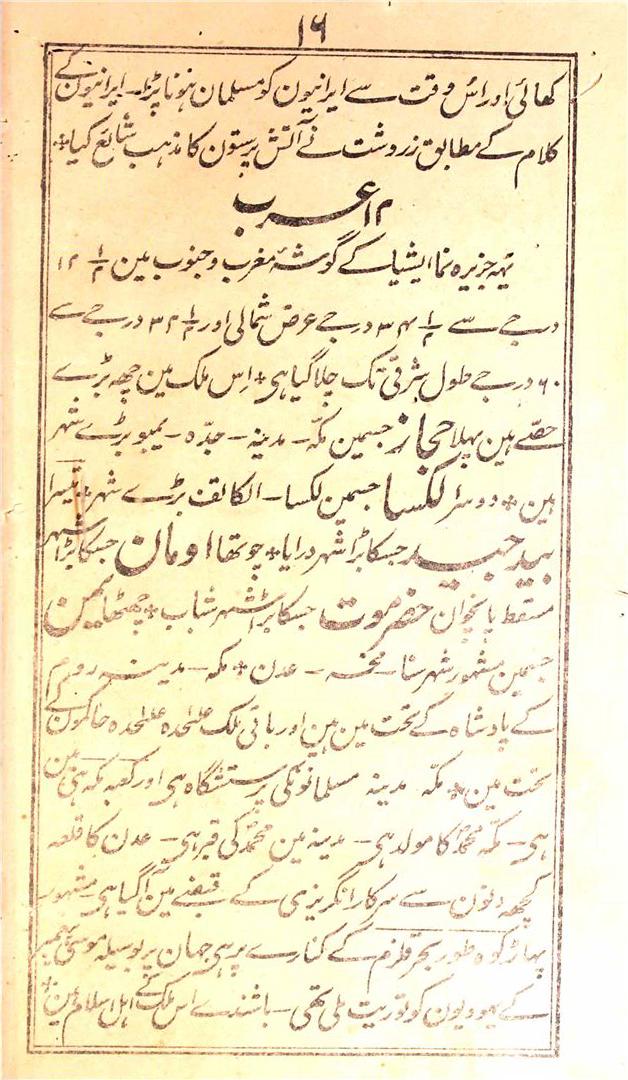 ۱۶
کھائی اور اس وقت سے ایرانیون کو مسلمان ہونا پڑا - ایرانیون کے
کلام کے مطابق زردشت نے آتش پرستون کا مذہب شائع کیا +
۱۲ عرب
یہہ جزیرہ نما ایشیا کے گوشۂ مغرب و جنوب مین ۱۲ ۱/۲
درجے سے ۳۴ ۱/۲ درجے عرض شمالی اور ۳۲ ۱/۲ درجے سے
۶۰ درجے طول شرقی تک چلا گیا ہی + اِس ملک مین چھہ بڑے
حصّے ہین پہلا حجاز جسمین مکّہ - مدینہ - جدّہ - یمبو بڑے شہر
ہین + دوسرا لکسا جسمین لکسا - الکاتف بڑے شہر + تیسرا
جسکا بڑا شہر درایا + چوتھا اومان جسکا بڑا شہر
مسقط پانچوان حضرموت جسکا بڑا شہر شباب + چھٹھا یمن
جسمین مشہور شہر سنا - مخہ - عدن + مکہ - مدینہ روم
کے پادشاہ کے تحت مین ہین اور باقی ملک علٰحدہ علٰحدہ حاکمون کے
تحت مین + مکّہ مدینہ مسلمانونکی پرستشگاہ ہی اور کعبہ مکہ ہی مین
ہی - مکّہ محمّد کا مولد ہی - مدینہ مین محمّد کی قبر ہی - عدن کا قلعہ
کچھہ دنون سے سرکار انگریزی کے قبضے مین آ گیا ہی - مشہور
پہاڑ کوہ طور بحر قلزم کے کنارے پر ہی جہان پر بوسیلہ موسیٰ پیغمبر
کے یہودیون کو توریت ملی تھی - باشندے اس ملک کے اہل اسلام ہین +